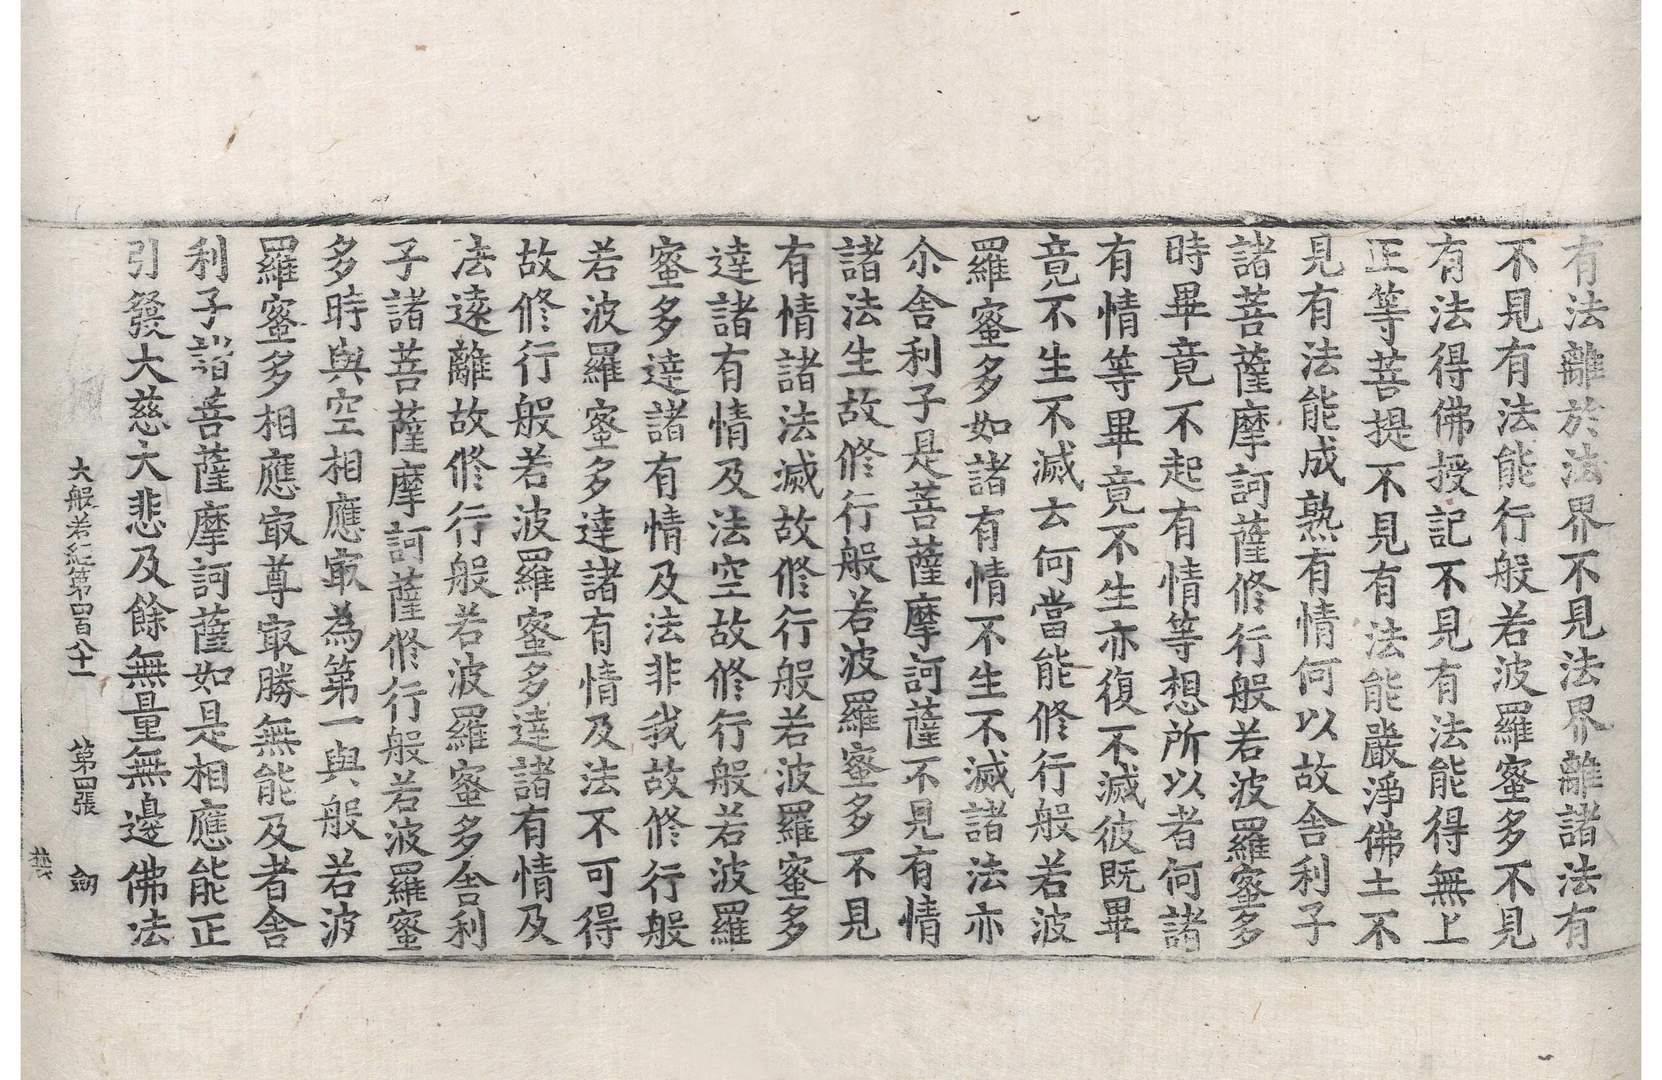 有法離於法界不見法界離諸法有
不見有法能行般若波羅蜜多不見
有法得佛授記不見有法能得無上
正等菩提不見有法能嚴淨佛土不
見有法能成熟有情何以故舍利子
諸菩薩摩訶薩修行般若波羅蜜多
時畢竟不起有情等想所以者何諸
有情等畢竟不生亦復不滅彼既畢
竟不生不滅云何當能修行般若波
羅蜜多如諸有情不生不滅諸法亦
尒舍利子是菩薩摩訶薩不見有情
諸法生故修行般若波羅蜜多不見
有情諸法滅故修行般若波羅蜜多
達諸有情及法空故修行般若波羅
蜜多達諸有情及法非我故修行般
若波羅蜜多達諸有情及法不可得
故修行般若波羅蜜多達諸有情及
法遠離故修行般若波羅蜜多舍利
子諸菩薩摩訶薩修行般若波羅蜜
多時與空相應㝡為第一與般若波
羅蜜多相應㝡尊㝡勝無能及者舍
利子諸菩薩摩訶薩如是相應能正
引發大慈大悲及餘無量無邊佛法
大般若經第四百八十一 第四張 劒